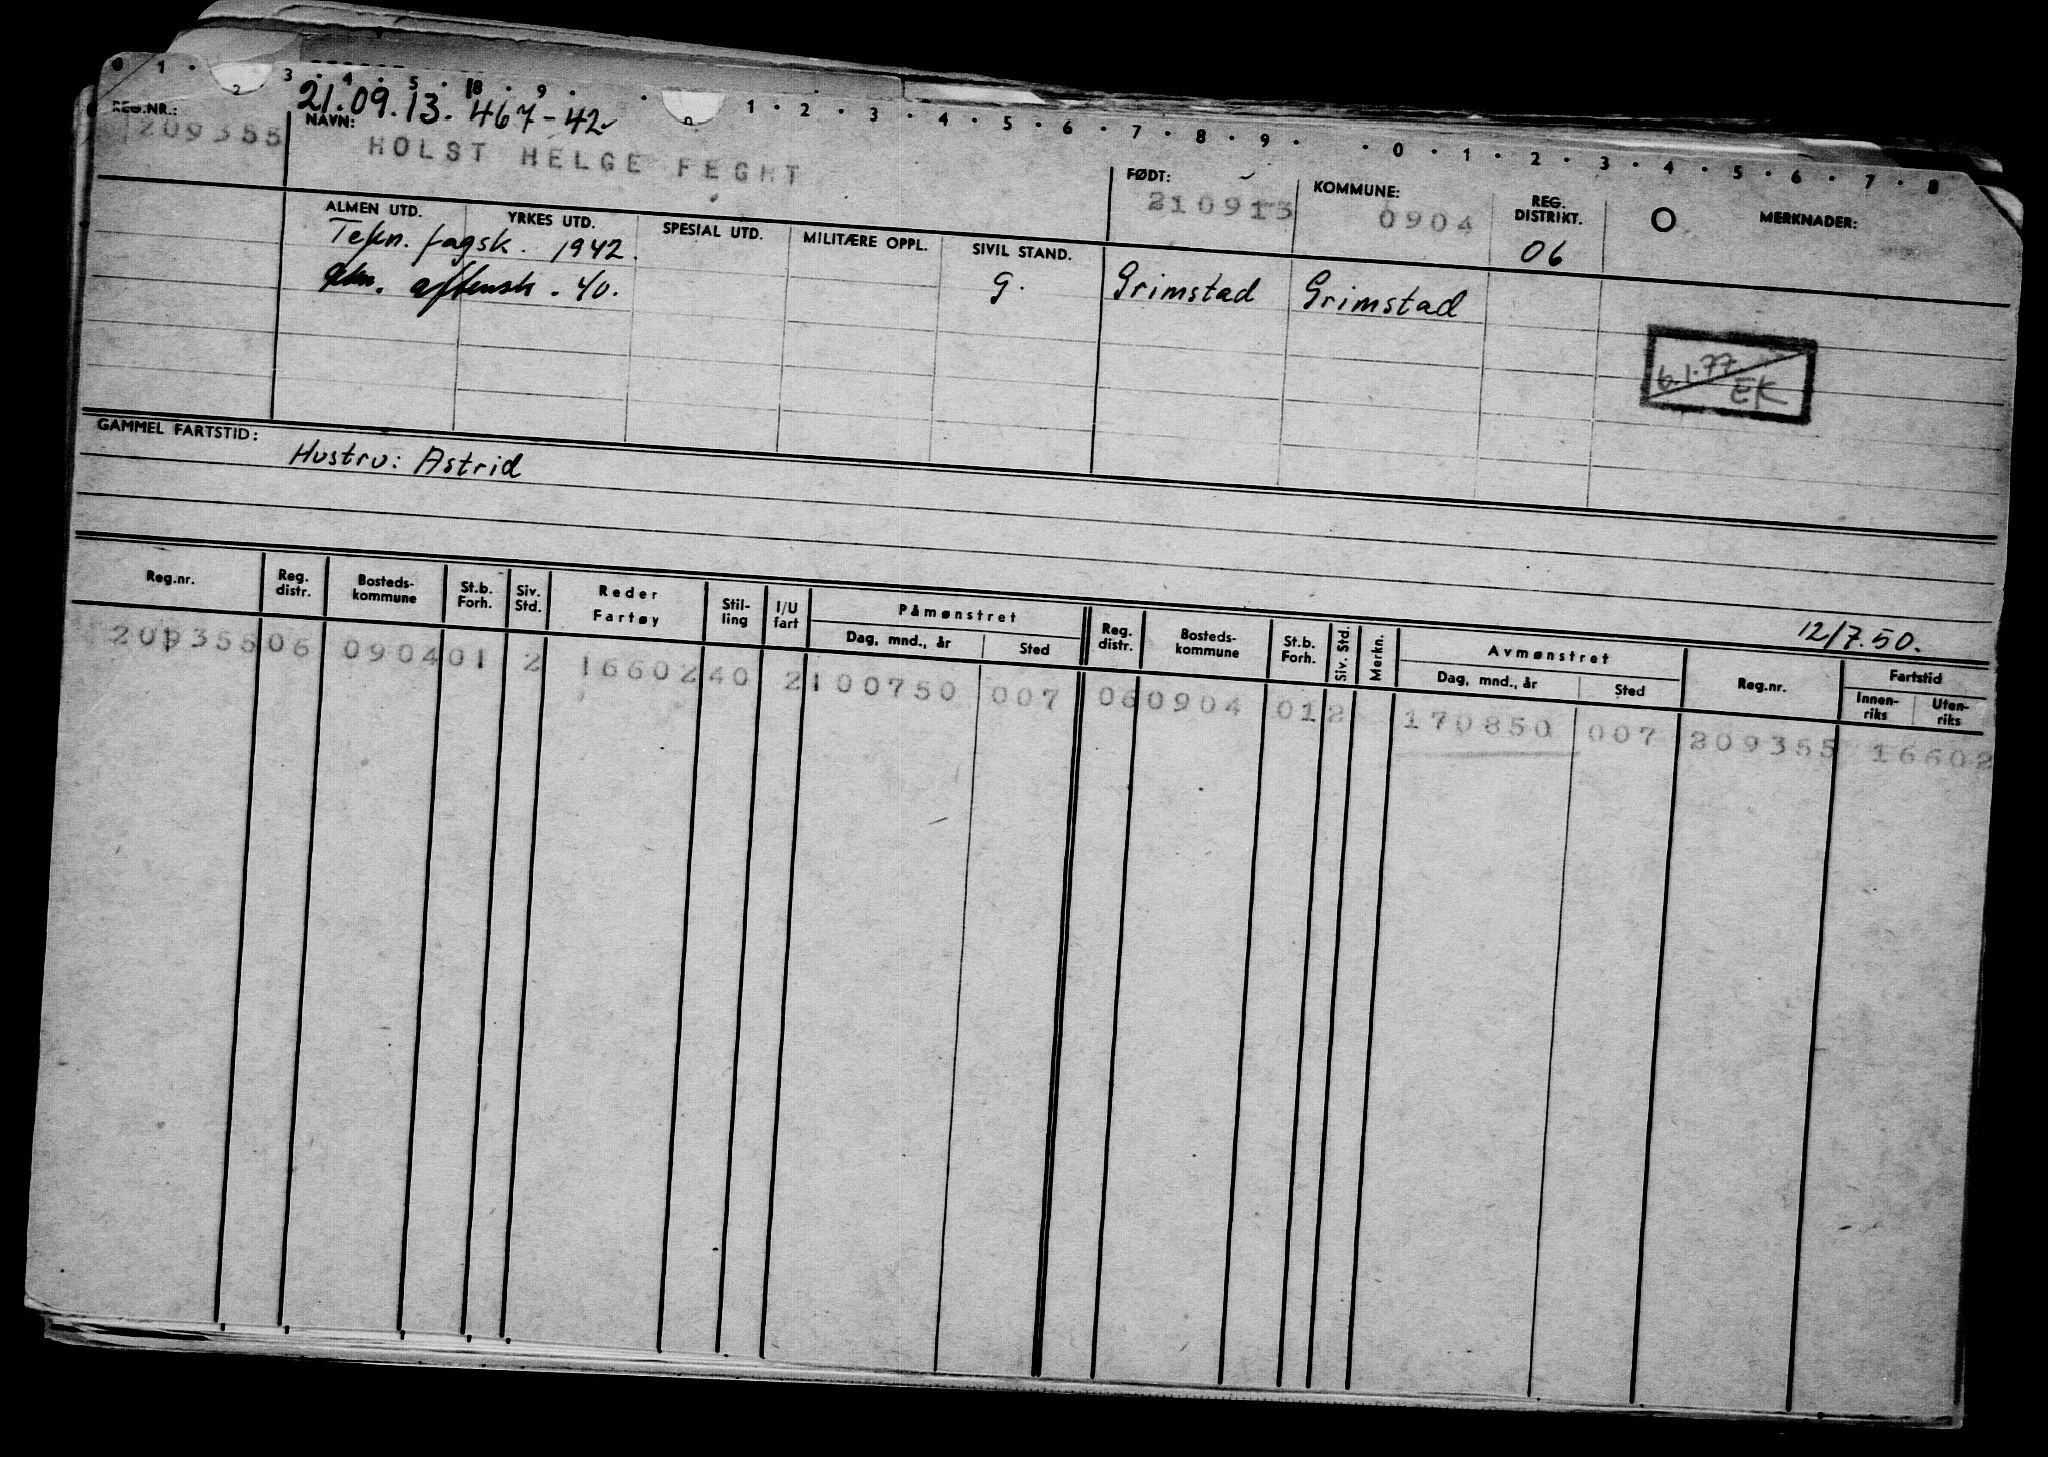 0 1 . 2 3 . 4 . 5 . 8 . 9 . . 0 1 . 2 . 3 . 4 . 5 . 6 . 7 . 8 . 9 . . 0 . 1 . 2 . 3 . 4 . 5 . 6 . 7 . 8
21.09.13. 467-42
REG.NR.: NAVN: FØDT: KOMMUNE: REG. DISTRIKT. MERKNADER:
209355 HOLST HELGE FEGHT 210913 0904 06
ALMEN UTD. YRKES UTD. SPESIAL UTD. MILITÆRE OPPL. SIVIL STAND.
Tekn. fagsk. 1942.
aftensk. 40. g. Grimstad Grimstad
6.1.77 EK
GAMMEL FARTSTID:
Hustru: Astrid
12/7.50.
Reg.nr. Reg. distr. Bosteds- kommune St.b. Forh. Siv. Std. Reder Fartøy Stil- ling I/U fart Påmønstret Reg. distr. Bosteds- kommune St.b. Forh. Siv. Std. Merkn. Avmønstret Reg.nr. Fartstid
Dag, mnd., år Sted Dag, mnd., år Sted Innen- riks Uten- riks
209355 06 0904 01 2 16602 40 2 100750 007 06 0904 01 2 170850 007 209355 16602